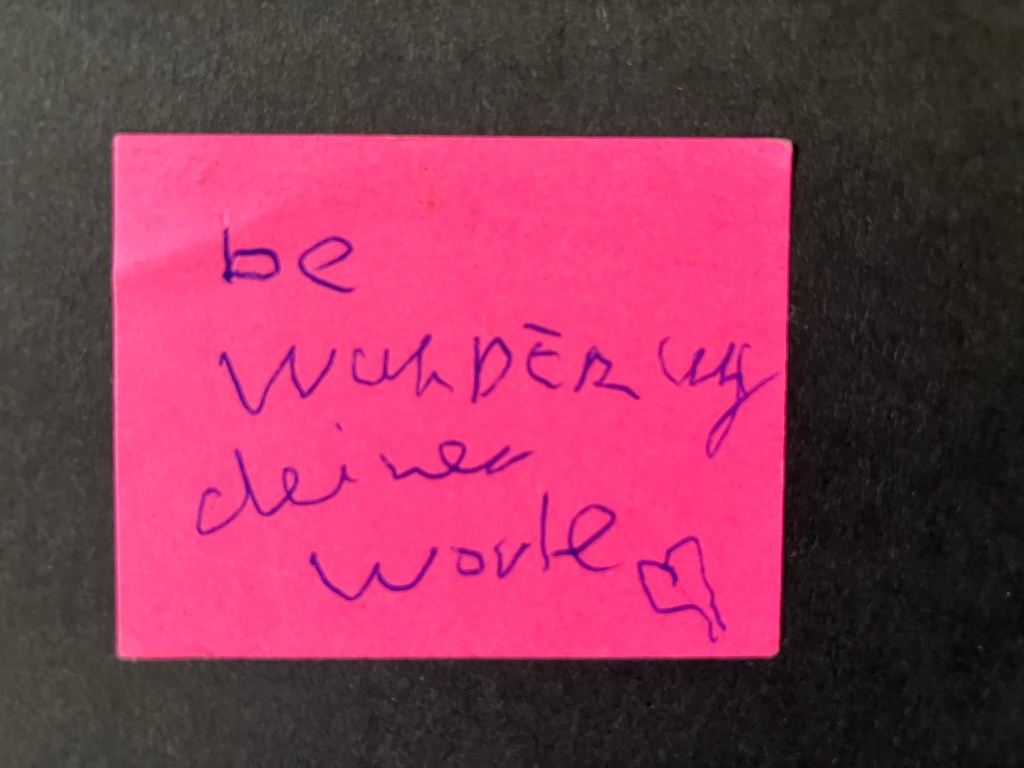 be
WUNDERung
deiner
Worte